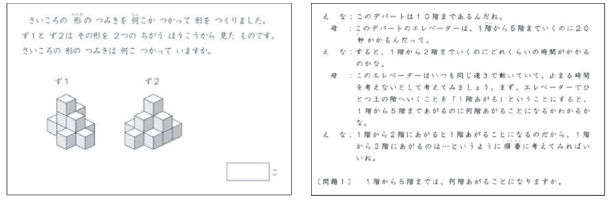 さいころの 形の つみきを 何こか つかって 形を つくりました。
ず1と ず2は その形を 2つの ちがう ほうこうから 見た ものです。
さいころの 形の つみきは 何こ つかって いますか。
ず1 ず2
こ
え な：このデパートは10階まであるんだね。
母 ：このデパートのエレベーターは、1階から5階までいくのに20
秒かかるんだって。
え な：すると、1階から2階までいくのにどれくらいの時間がかかる
のかな。
母 ：このエレベーターはいつも同じ速さで動いていて、止まる時間
を考えないとして考えてみましょう。まず、エレベーターでひ
とつ上の階へいくことを「1階あがる」ということにすると、
1階から5階まであがるのに何階あがることになるかわかるか
な。
え な：1階から2階にあがると1階あがることになるのだから、1階
から3階にあがるのは…というように順番に考えてみればい
いね。
(問題1) 1階から5階までは、何階あがることになりますか。